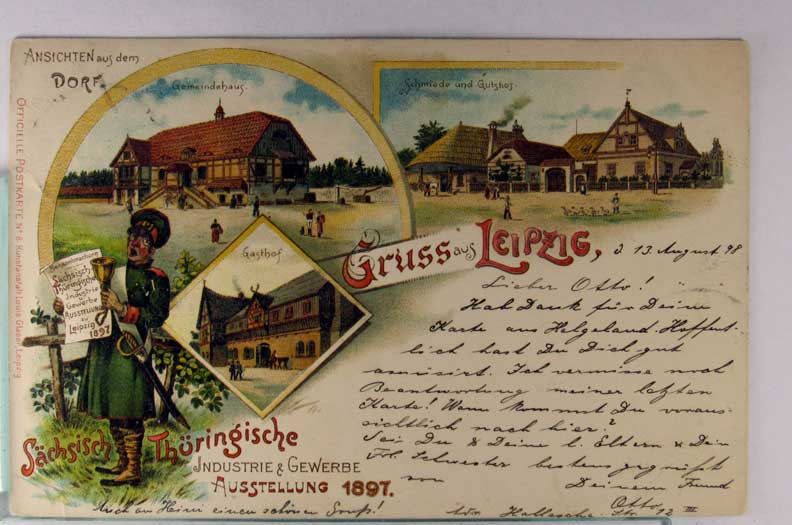 ANSICHTEN aus dem
DORF
Gemeindehaus.
Schmiede und Gutshof.
OFFICIELLE POSTKARTE No 8 Kunstanstalt Louis Glaser, Leipzig
Gasthof
Gruss aus LEIPZIG, d 13. August 98
Bekanntmachung
Sächsisch
Thüringische
Industrie
& Gewerbe
AUSSTELLUNG
zu
Leipzig
1897
Lieber Otto!
Hab Dank für Deine
Karte aus Helgoland. Hoffent-
lich hast Du Dich gut
amüsirt. Ich vermisse noch
Beantwortung meiner letzten
Karte! Wann kommst Du voraus-
sichtlich nach hier?
Sei Du & Deine l. Eltern & Dein
Frl. Schwester bestens gegrüßt
von Deinem Freund
Otto
Sächsisch Thüringische
INDUSTRIE & GEWERBE
AUSSTELLUNG 1897.
Auch an Heini einen schönen Gruß!
Hallesche Str. 12 III